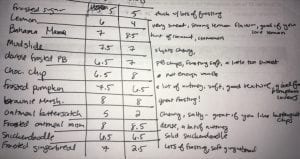 Frosted sugar 7.5 5 lots of frosting
Lemon 6 4 very sweet, strong lemon flavor, good if you love lemon
Banana 7 8.5 hint of coconut, cinnamon
Mudslide 7.5 7 slightly chewy
double frosted PB 6.5 7 PB chips, frosting soft, a little too sweet
Choc. chip 6.5 8 not enough vanilla
Frosted pumpkin 7.5 6.5 a lot of nutmeg, soft, good texture
Marsh. 8 8 great frosting!
Oatmeal butterscotch 5 2 chewy, salty, great if you like butterscotch chips
Frosted oatmeal 8 8.5 dense, a lot of nutmeg
Snickerdoodle 6.5 6.5 solid snickerdoodle
Frosted gingerbread 7 2.5 lots of frosting, soft gingerbread